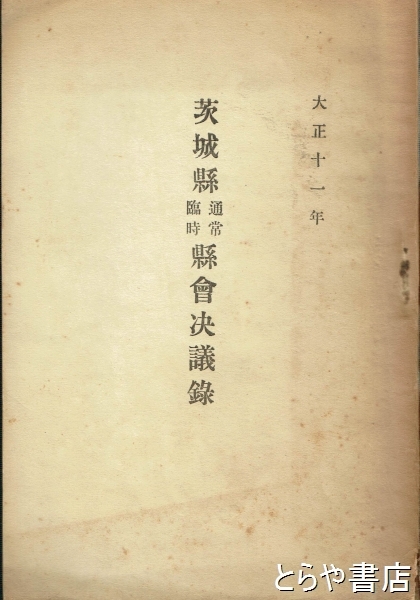 大正十一年
茨城縣通常臨時縣會决議錄
とらや書店